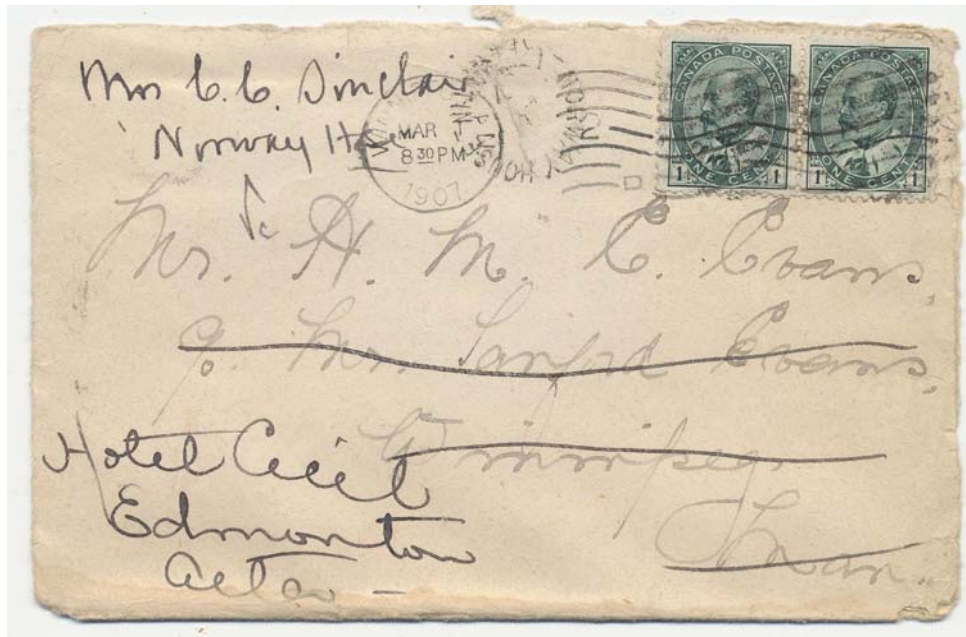 Mrs C. C. Sinclair
Norway Ho
MAR
8 30 PM
1907
NORWAY HOUSE
CANADA POSTAGE
1 ONE CENT 1
CANADA POSTAGE
1 ONE CENT 1
Mr. H. M. E. Evans,
c/o Mr. Sanford Evans,
Winnipeg,
Man.
Hotel Cecil
Edmonton
Alta -